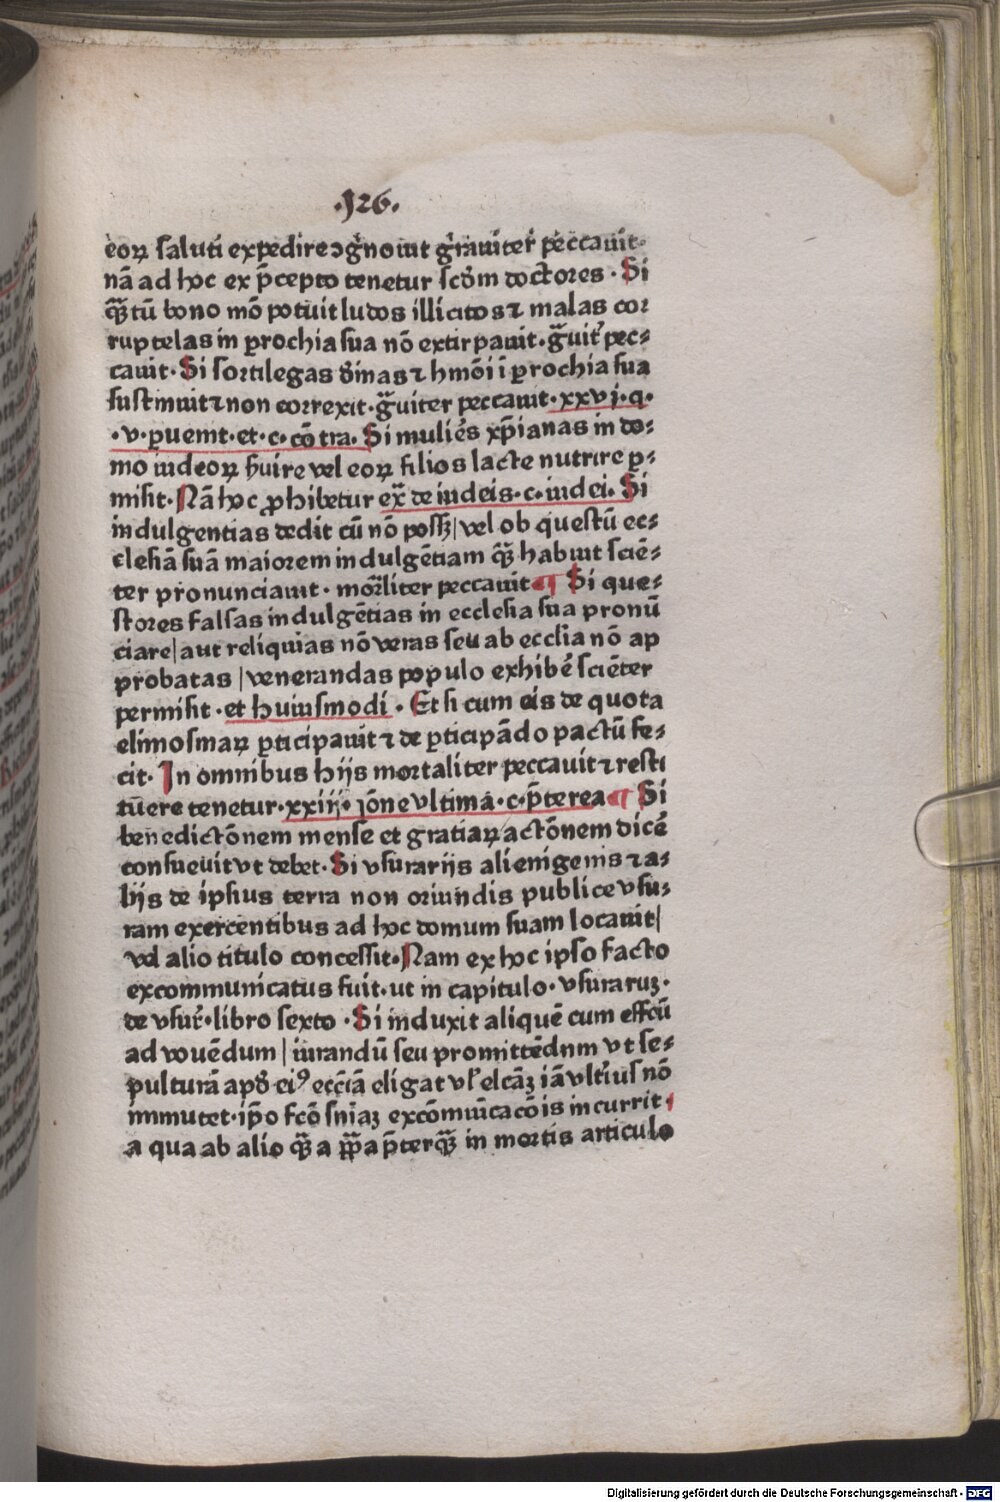 .126.
eoꝝ saluti expedire ↄg̃nouit g̃rauiter̃ peccauit.
nā ad hoc ex p̄cepto tenetur scḋm doctores . Si
qȝ̄tū bono mō potuit ludos illicitos ⁊ malas cor
ruptelas in ꝑrochia sua nō extirpauit . g̃uit̃ pec-
cauit . Si sortilegas diuinas ⁊ hmōi ī ꝑrochia sua
sustinuit ⁊ non correxit . g̃uiter peccauit . xxvj . q .
. v . ꝑuenit . et . c . cōtra . Si mulieřs xp̄ianas in do-
mo iudeoꝝ ẜuire vel eoꝝ filios lacte nutrire ꝑ-
misit . Nā hoc ꝓhibetur ex̄ de iudeis . c . iudei . Si
indulgentias dedit cū nō possȝ | vel ob questū ec-
clesiā suā maiorem indulgētiam qȝ̄ habuit sciē-
ter pronunciauit . mor̄liter peccauit ¶ Si que-
stores falsas indulgētias in ecclesia sua pronū
ciare | aut reliquias nō veras seu ab ecclīa nō ap
probatas | venerandas populo exhibēr sciēter
permisit . et huiusmodi . Et si cum eis de quota
elimosinaꝝ ꝑticipauit ⁊ de ꝑticipādo pactū fe-
cit . In omnibus hijs mortaliter peccauit ⁊ resti
tuere tenetur . xxiij . q̄one vltima . c . p̄terea ¶ Si
benedictōnem mense et gratiaꝝ actōnem dicē
consueuit vt debet . Si vsurarijs alienigenis ⁊ a-
lijs de ipsius terra non oriundis publice vsu-
ram exercentibus ad hoc domum suam locauit |
vel alio titulo concessit . Nam ex hoc ipso facto
excommunicatus fuit . ut in capitulo . vsuraruȝ .
de vsur̄ . libro sexto . Si induxit aliquē cum effcū
ad vouēdum | iurandū seu promittēdum vt se-
pulturā apd̄ eiꝰ ecc̄iā eligat vl̓ elc̄aȝ iā vlteriꝰ nō
immutet . ip̄o fcō snīaȝ excōmuīcacōis incurrit .
a qua ab alio qȝ̄ a pp̄a p̄terqȝ̄ in mortis articulo
Digitalisierung gefördert durch die Deutsche Forschungsgemeinschaft - DFG